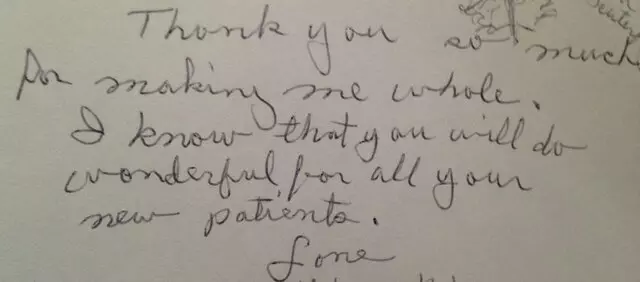 Thank you so much
for making me whole.
I know that you will do
wonderful for all your
new patients.